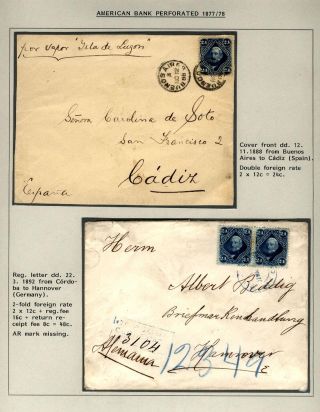 AMERICAN BANK PERFORATED 1877/78
por vapor "Isla de Luzon"
BUENOS AIRES
24
Señora Carolina de Soto
San Francisco 2
Cádiz
España
Cover front dd. 12.
11.1888 from Buenos
Aires to Cádiz (Spain).
Double foreign rate
2 x 12c = 24c.
Reg. letter dd. 22.
3. 1892 from Córdo-
ba to Hannover
(Germany).
2-fold foreign rate
2 x 12c + reg.fee
16c + return re-
ceipt fee 8c = 48c.
AR mark missing.
Herrn
Albert Beddig
Briefmarkenhandlung
Hannover
3104
Alemania
12349